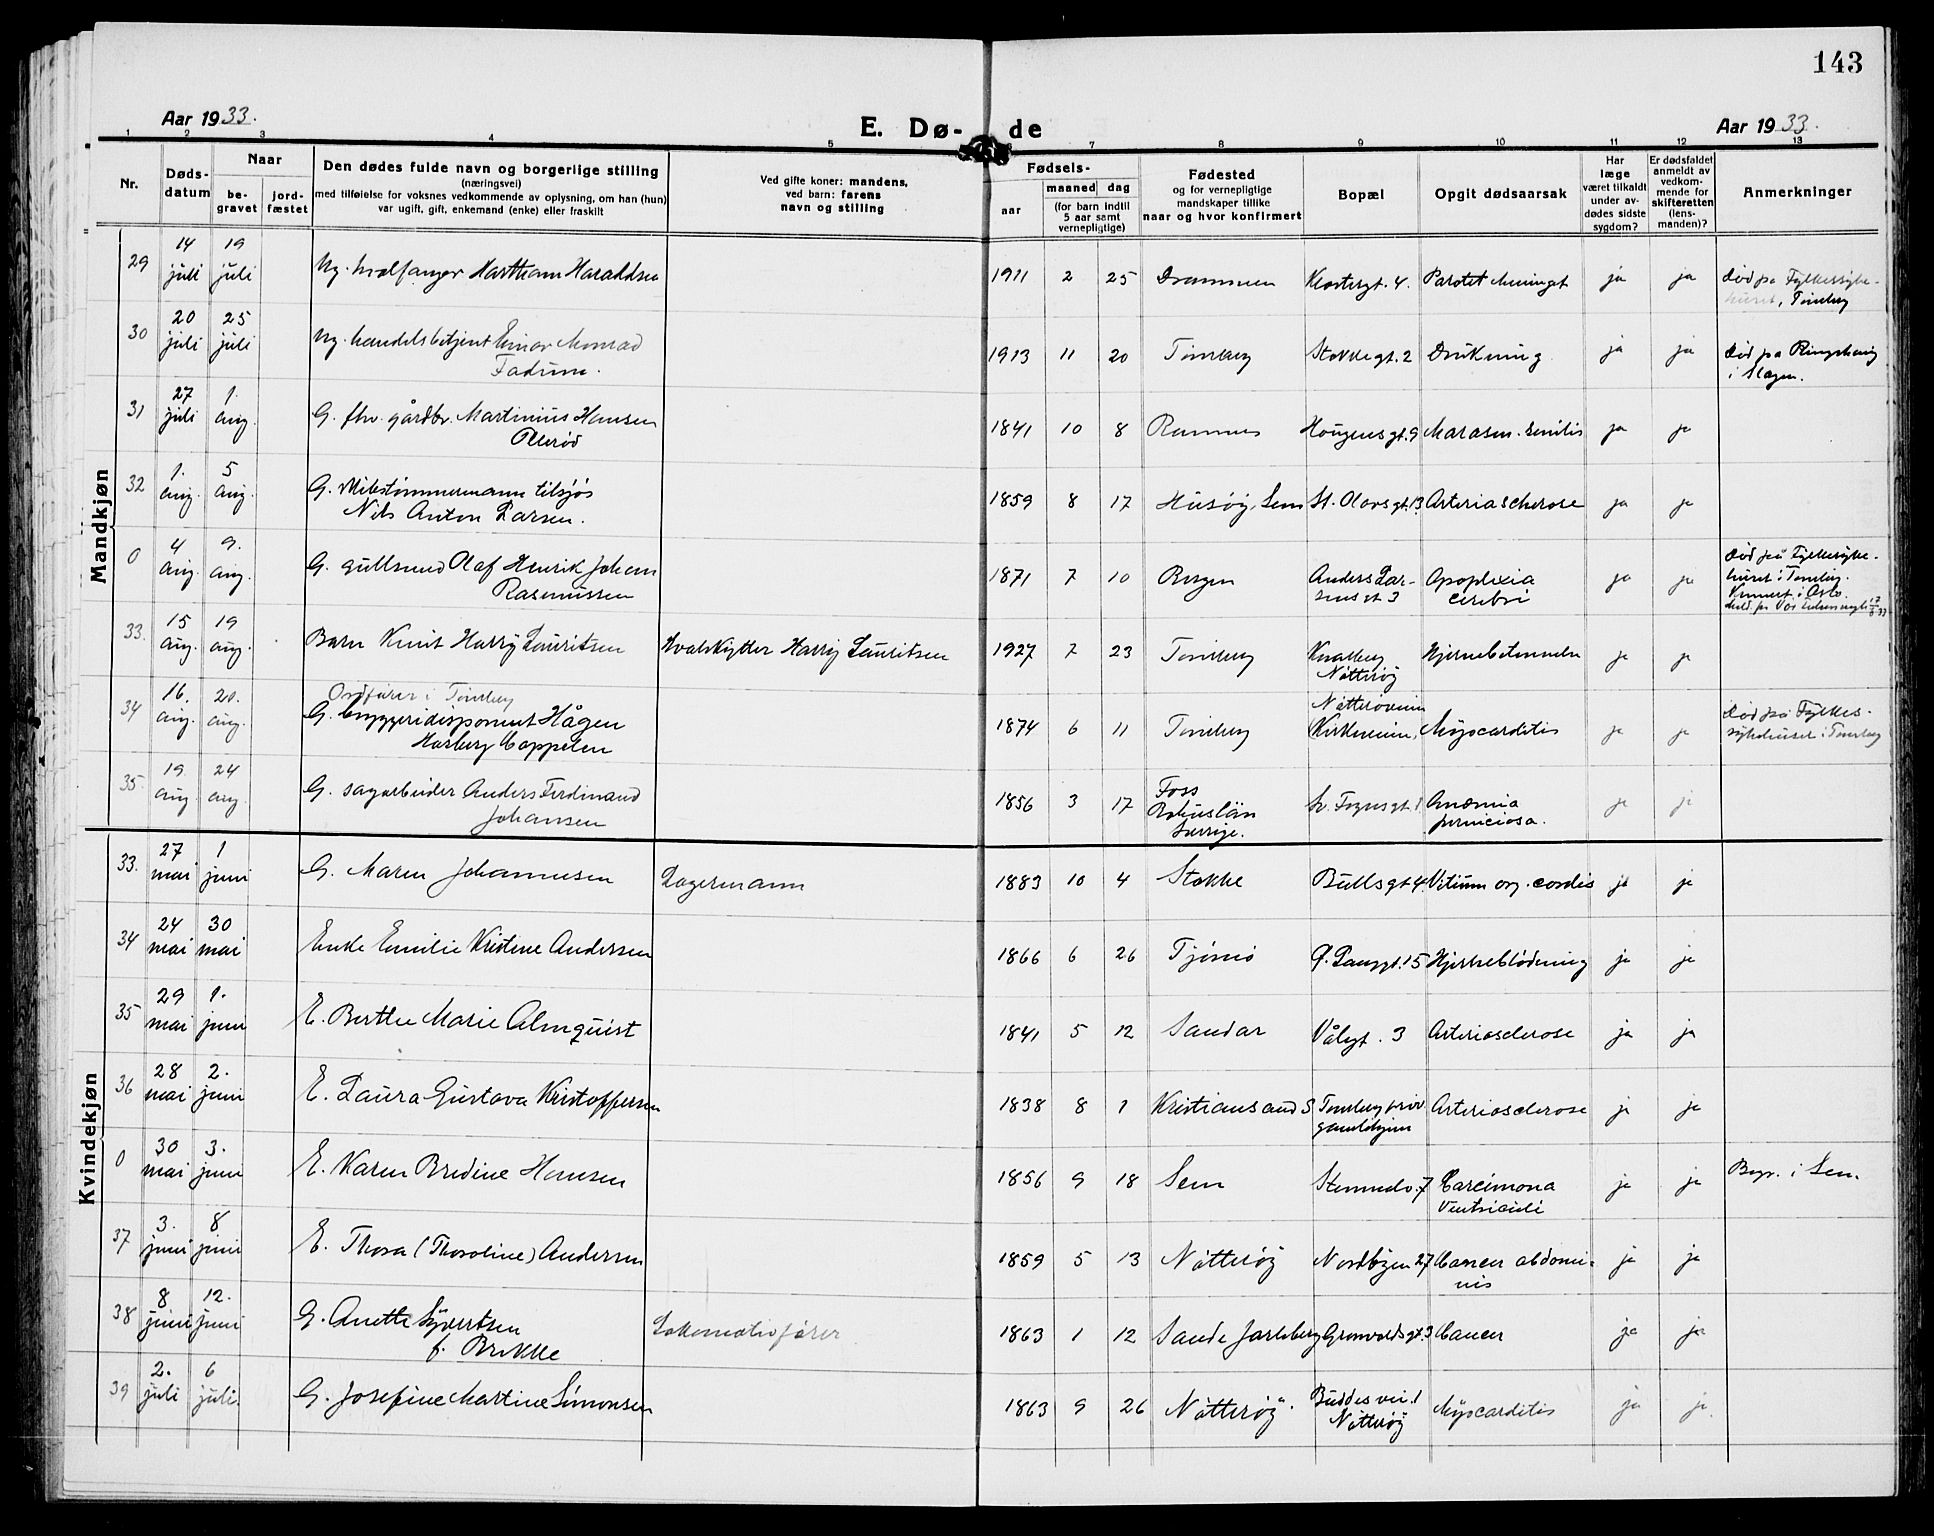 143
Aar 1933.
E. Dø- de
Aar 1933.
1 2 3 4 5 6 7 8 9 10 11 12 13
Nr.
Døds-datum
Naar
be-gravet
jord-fæstet
Den dødes fulde navn og borgerlige stilling
(næringsvei)
med tilføielse for voksnes vedkommende av oplysning, om han (hun)
var ugift, gift, enkemand (enke) eller fraskilt
Ved gifte koner: mandens,
ved barn: farens
navn og stilling
Fødsels-
aar
maaned
dag
(for barn indtil
5 aar samt
vernepligtige)
Fødested
og for vernepligtige
mandskaper tillike
naar og hvor konfirmert
Bopæl
Opgit dødsaarsak
Har
læge
været tilkaldt
under av-
dødes sidste
sygdom?
Er dødsfaldet
anmeldt av
vedkom-
mende for
skifteretten
(lens-
manden)?
Anmerkninger
Mandkjøn
29 14 juli 19 juli Ug. hvalfanger Hartham Haraldsen 1911 2 25 Drammen Klostergt. 4. Parotet Meningit ja ja død på Fylkessyke-
huset, Tønsberg
30 20 juli 25 juli Ug. handelsbetjent Einar Monrad
Fadum. 1913 11 20 Tønsberg Stokkegt. 2 Drukning ja ja død på Ringshaug
i Slagen.
31 27 juli 1. aug. G. fhv. gårdbr. Martinius Hansen
Ollerød 1841 10 8 Ramnes Haugensgt. 9 Marasm. senilis ja ja
32 1. aug. 5 aug. G. Seilskibstømmermann tilsjøs
Nils Anton Larsen. 1859 8 17 Husøy, Sem St. Olavsgt. 13 Arteriascherose ja ja
0 4 aug. 9. aug. G. gullsmed Olaf Henrik Johan
Rasmussen 1871 7 10 Bergen Anders Lar-
sensgt 3 Apoplexia
cerebri ja ja død på Fylkessyke-
huset i Tønsberg.
Kremert i Oslo.
33. 15 aug. 19 aug. Barn Knut Harry Lauritsen Hvalskytter Harry Lauritsen 1927 7 23 Tønsberg Knarberg
Nøtterøy Hjernebetennelse ja ja
34 16. aug. 20. aug. Ordfører i Tønsberg
G. bryggeridisponent Hågen
Harberg Cappelen 1874 6 11 Tønsberg Nøtterøveien
Kirkeveien, Myocarditis ja ja død på Fylkes-
sykehuset i Tønsberg
35. 19. aug. 24 aug. G. sagarbeider Anders Ferdinand
Johansen 1856 3 17 Foss
Bohuslän
Sverige. Sv. Foynsgt. 1 Anæmia
perniciosa. ja ja
Kvindekjøn
33. 27 mai 1 juni G. Maren Johannesen Lagermann 1883 10 4 Stokke Bullsgt 4 Vitium org. cordis ja ja
34 24 mai 30 mai Enke Emilie Kristine Andersen 1866 6 26 Tjømø Ø. Langgt. 15 Hjerneblødning ja ja
35 29 mai 1. juni E. Berthe Marie Almquist 1841 5 12 Sandar Vålegt. 3 Arteriosclerose ja ja
36 28 mai 2. juni E. Laura Gustava Kristoffersen 1838 8 1 Kristiansand S Tønsberg priv
gamlehjem Arteriosclerose ja ja
0 30 mai 3. juni E. Karen Bredine Hansen 1856 9 18 Sem Stenmalv. 7 Carcimona
Ventriculi ja ja Begr. i Sem.
37 3. juni 8 juni E. Thora (Thoraline) Andersen 1859 5 13 Nøtterøy Nordbyen 27 Cancer abdomi-
nis ja ja
38 8 juni 12. juni G. Anette Syvertsen
f. Brekke Lokomotivfører 1863 1 12 Sande Jarlsberg Grønvoldsgt. 3 Cancer ja ja
39 2. juli 6 juli. G. Josefine Martine Simonsen 1863 9 26 Nøtterøy. Buddes vei. 1
Nøtterøy Myocarditis ja ja.